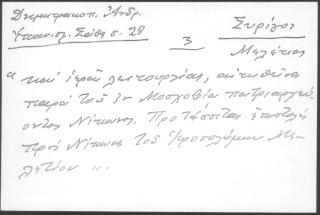 Δημητρακοπ. Ἀνδρ.
Συρίγος
σ. 29
3
Μελέτιος
"καὶ ἱερᾶς λειτουργίας, αἰτηθεῖσα
παρὰ τοῦ ἐν Μοσχοβίᾳ πατριαρχεύ-
οντος Νίκωνος. Προτάσσεται ἐπιστολὴ
πρὸς Νίκωνα τοῦ Ἱεροσολύμων Με-
λετίου".